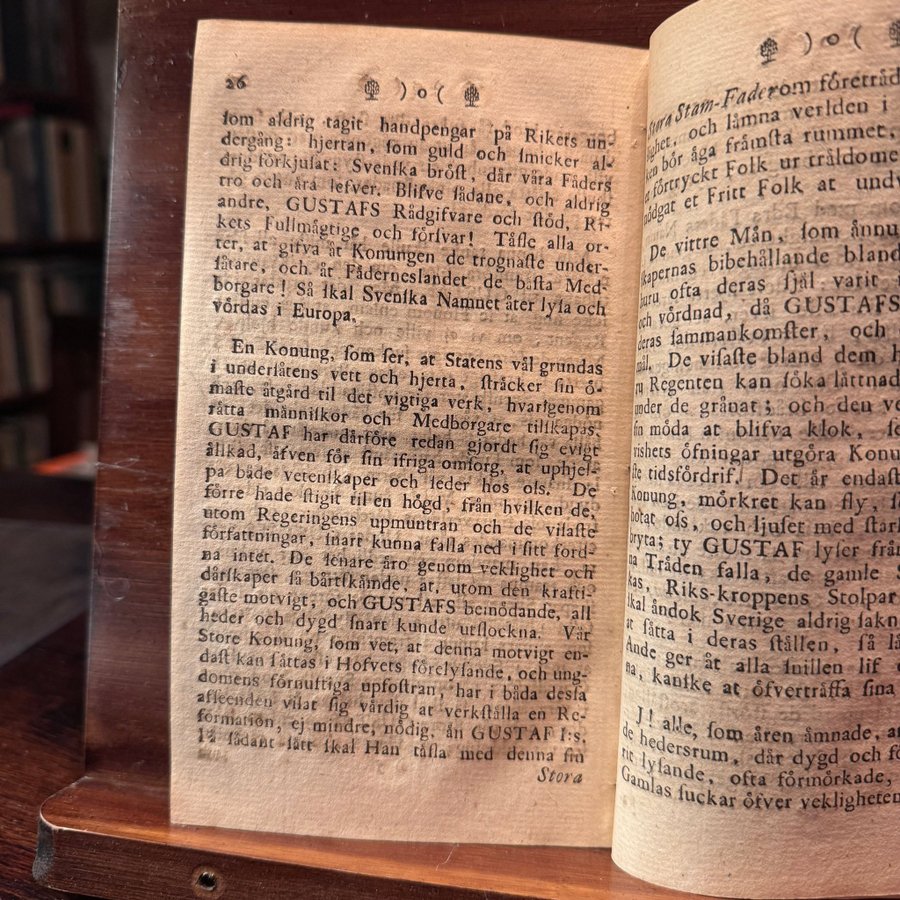 26 ) o (
ſom aldrig tagit handpengar på Rikets un-
dergång: hjertan, ſom guld och ſmicker al-
drig förkjuſat: Svenſka bröſt, där våra Fäders
tro och ära lefver. Blifve ſådane, och aldrig
andre, GUSTAFS Rådgifvare och ſtöd, Ri-
kets Fullmägtige och förſvar! Täfle alla or-
ter, at gifva åt Konungen de trognaſte under-
ſåtare, och åt Fäderneslandet de bäſta Med-
borgare! Så ſkal Svenſka Namnet åter lyſa och
vördas i Europa.
En Konung, ſom ſer, at Statens väl grundas
i underſåtens vett och hjerta, ſträcker ſin ö-
maſte åtgärd til det vigtiga verk, hvarigenom
rätta människor och Medborgare tilſkapas.
GUSTAF har därföre redan gjordt ſig evigt
älſkad, äfven för ſin ifriga omſorg, at uphjel-
pa både vetenſkaper och ſeder hos oſs. De
förre hade ſtigit til en högd, från hvilken de,
utom Regeringens upmuntran och de viſaſte
författningar, ſnart kunna falla ned i ſitt ford-
na intet. De ſenare äro genom veklighet och
dårſkaper ſå bårtſkämde, at, utom den krafti-
gaſte motvigt, och GUSTAFS bemödande, all
heder och dygd ſnart kunde utſlockna. Vår
Store Konung, ſom vet, at denna motvigt en-
daſt kan ſättas i Hofvets förelyſande, och ung-
domens förnuftiga upfoſtran, har i båda deſſa
afſeenden viſat ſig värdig at verkſtälla en Re-
formation, ej mindre, nödig, än GUSTAF I:s.
På ſådant ſätt ſkal Han täfla med denna ſin
Stora
) o (
Stora Stam-Fader om företräd
lighet, och lämna verlden i
ken bör äga främſta rummet,
förtryckt Folk ur träldome
nödgat et Fritt Folk at undv
De vittre Män, ſom ännu
ſkapernas bibehållande bland
huru ofta deras ſjäl varit
och vördnad, då GUSTAFS
deras ſammankomſter, och
mål. De viſaſte bland dem
ru Regenten kan ſöka lättnad
under de gränat; och den ve
ſin möda at blifva klok,
rishets öfningar utgöra Konu
ſte tidsfördrif. Det är endaſt
Konung, mörkret kan fly,
hotat oſs, och ljuſet med ſtark
bryta; ty GUSTAF lyſer från
na Tråden falla, de gamle
kas, Riks-kroppens Stolpar
ſkal ändok Sverige aldrig ſakn
at ſätta i deras ſtällen, ſå
Ande ger åt alla ſnillen lif
na, kanſke at öfverträffa ſina
J! alle, ſom ären ämnade,
de hedersrum, där dygd och
rit lyſande, ofta förmörkade,
Gamlas ſuckar öfver vekligheten